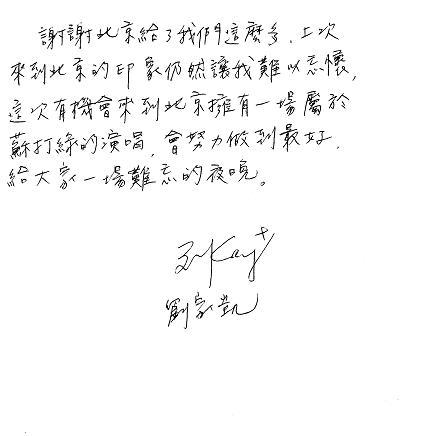 謝謝北京給了我們這麼多,上次
來到北京的印象仍然讓我難以忘懷,
這次有機會來到北京擁有一場屬於
蘇打綠的演唱,會努力做到最好,
給大家一場難忘的夜晚。
Kay
劉家凱